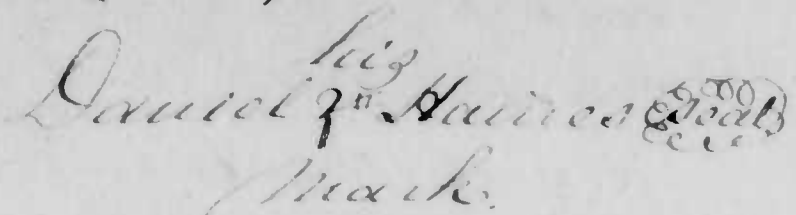 his
Daniel Haines Seal
Mark.